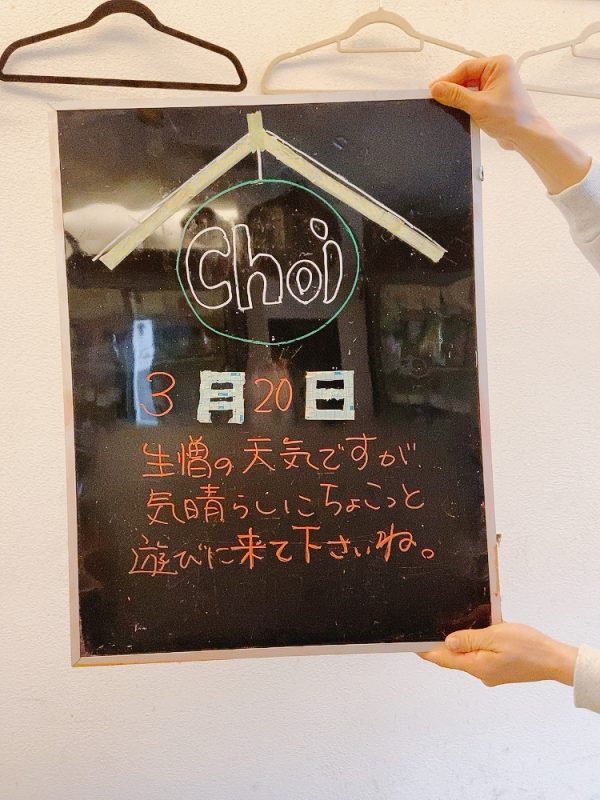 Choi
3月20日
生憎の天気ですが
気晴らしにちょこっと
遊びに来て下さいね。